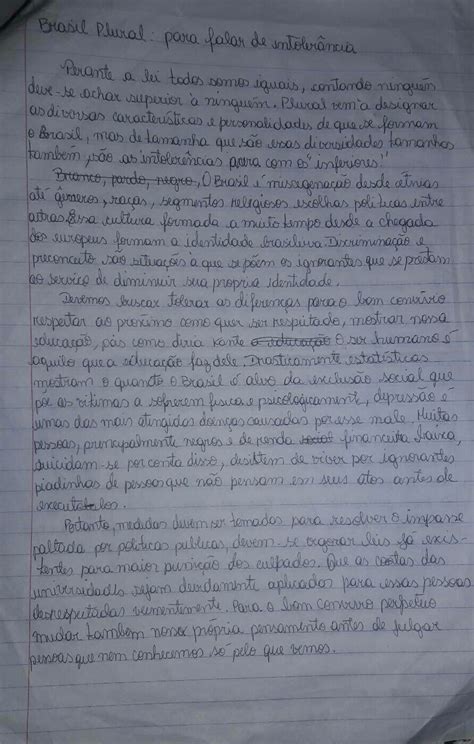 Brasil Plural: para falar de intolerância
Perante a lei todos somos iguais, contando ninguém
deve-se achar superior à ninguém. Plural vem a designar
as diversas características e personalidades de que se formam
o Brasil, mas de tamanha que são essas diversidades tamanhas
também, são as intolerâncias para com os "inferiores."
Branco, pardo, negro, O Brasil é miscigenação desde etnias
até gêneros, raças, segmentos religiosos escolhas politicas entre
outras. Essa cultura formada a muito tempo desde a chegada
dos europeus formam a identidade brasileira. Discriminação e
preconceito são situações a que se põem os ignorantes que se prestam
ao serviço de diminuir sua propria identidade.
Devemos buscar tolerar as diferenças para o bom convívio
respeitar ao próximo como quer ser respeitado, mostrar nossa
educação, pois como diria kante a educação O ser humano é
aquilo que a educação faz dele. Drasticamente estatísticas
mostram o quanto o Brasil é alvo da exclusão social que
por as vitimas a sofrerem fisica e psicologicamente, depressão é
umas das mais atingidas doenças causadas por esse male. Muitas
pessoas, principalmente negros e de renda social financeita baixa,
suicidam-se por conta disso, desistem de viver por ignorantes
piadinhas de pessoas que não pensam em seus atos antes de
executalos.
Portanto, medidas devem ser tomadas para resolver o impasse
paltada por politicas publicas, devem-se ogorar leis já exis-
tentes para maior punição dos culpados. Que as contas das
universidades sejam devidamente aplicados para essas pessoas
desrespeitadas veementemente. Para o bom convivio perpetuo
mudar tambem nosso própria pensamento antes de julgar
pessoas que nem conhecemos só pelo que vemos.